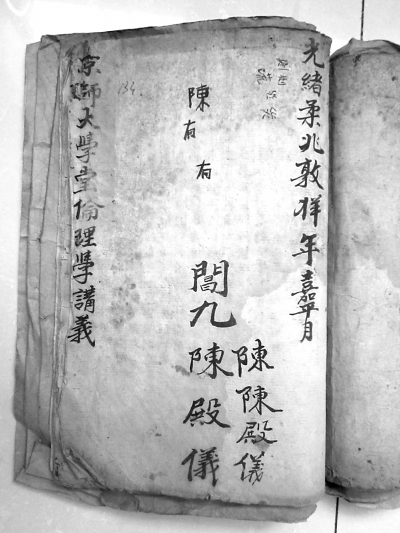 光緒柔兆敦牂年嘉平月
陳陳殿儀
陳有有
九陳殿儀
134.
京師大學堂倫理學講義